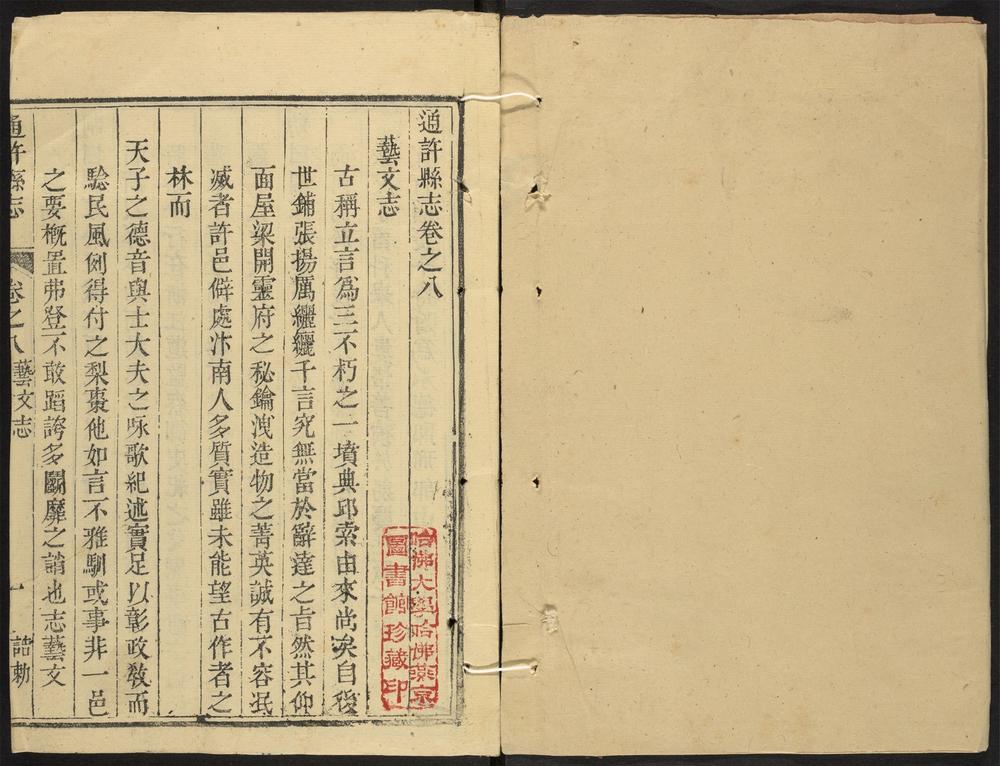 通許縣志卷之八
藝文志
古稱立言爲三不朽之一墳典邱索由來尚矣自後
世鋪張揚厲纚纚千言究無當於辭達之旨然其仰
面屋梁開靈府之秘鑰洩造物之菁英誠有不容泯
滅者許邑僻處汴南人多質實雖未能望古作者之
林而
天子之德音與士大夫之咏歌紀述實足以彰政教而
騐民風例得付之梨棗他如言不雅馴或事非一邑
之要概置弗登不敢蹈誇多鬭靡之誚也志藝文
通許縣志
卷之八藝文志
一
誥勅
哈佛大學哈佛燕京
圖書館珍藏印